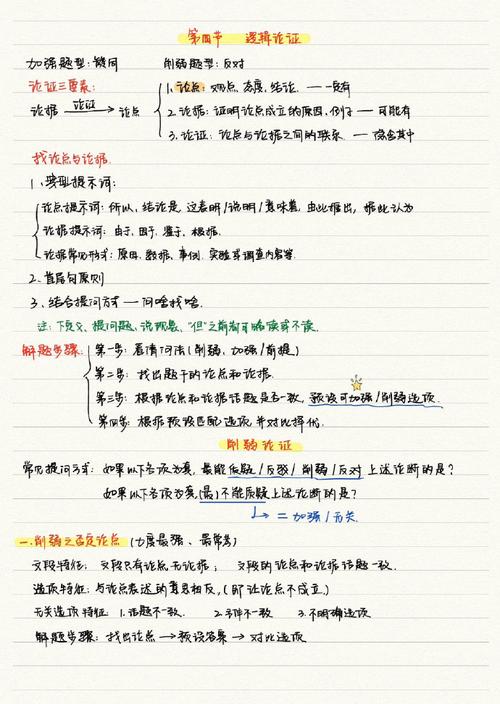 第四节 逻辑论证
加强题型: 疑问 削弱题型: 反对
论证三要素:
论据 论证→ 论点
1. 论点: 观点、态度、结论. — 一定有
2. 论据: 证明论点成立的原因、例子 — 可能有
3. 论证: 论点与论据之间的联系. — 隐含其中
找论点与论据.
1. 典型提示词:
论点提示词: 所以、结论是、这表明/说明/意味着、由此推出、据此认为
论据提示词: 由于、因于、鉴于、根据.
论据常见形式: 原因、数据、事例、实验或调查内容等.
2. 首尾句原则
3. 结合提问方式 — 问啥找啥.
注: 下定义、提问题、说现象、"但"之前都可略读或不读.
解题步骤:
第一步: 看清问法 (削弱、加强/前提)
第二步: 找出题干的论点和论据.
第三步: 根据论点和论据话题是否一致, 预设可加强/削弱选项.
第四步: 根据预设匹配选项并对比择优.
削弱论证
常见提问方式: 如果以下各项为真, 最能质疑/反驳/削弱/反对上述论断的是?
如果以下各项为真, (最)不能质疑上述论断的是?
↳ = 加强/无关.
一. 削弱之否定论点 (力度最强、最常考)
文段特征: 文段只有论点无论据; 文段的论点和论据话题一致.
选项特征: 与论点表述的意思相反, (即让论点不成立.)
无关选项特征 1. 话题不一致. 2. 不一致 3. 不明确选项
解题步骤: 找出论点 → 预设答案 → 对比选项